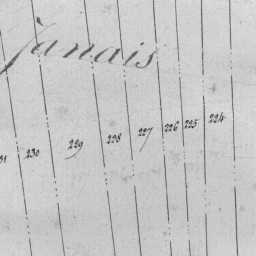 Janais
230 229 228 227 226 225 224